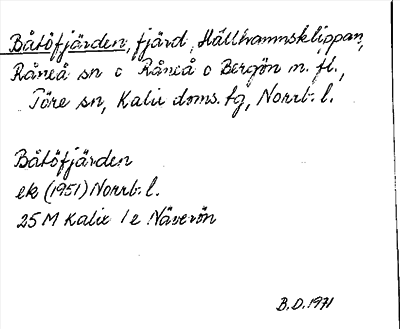 Båtöfjärden, fjärd, Hällhamnsklippan,
Råneå sn o Råneå o Bergön m. fl.,
Töre sn, Kalix doms. tg, Norrb. l.
Båtöfjärden
ek (1951) Norrb. l.
25 M Kalix 1 e Näverön
B.D. 1971